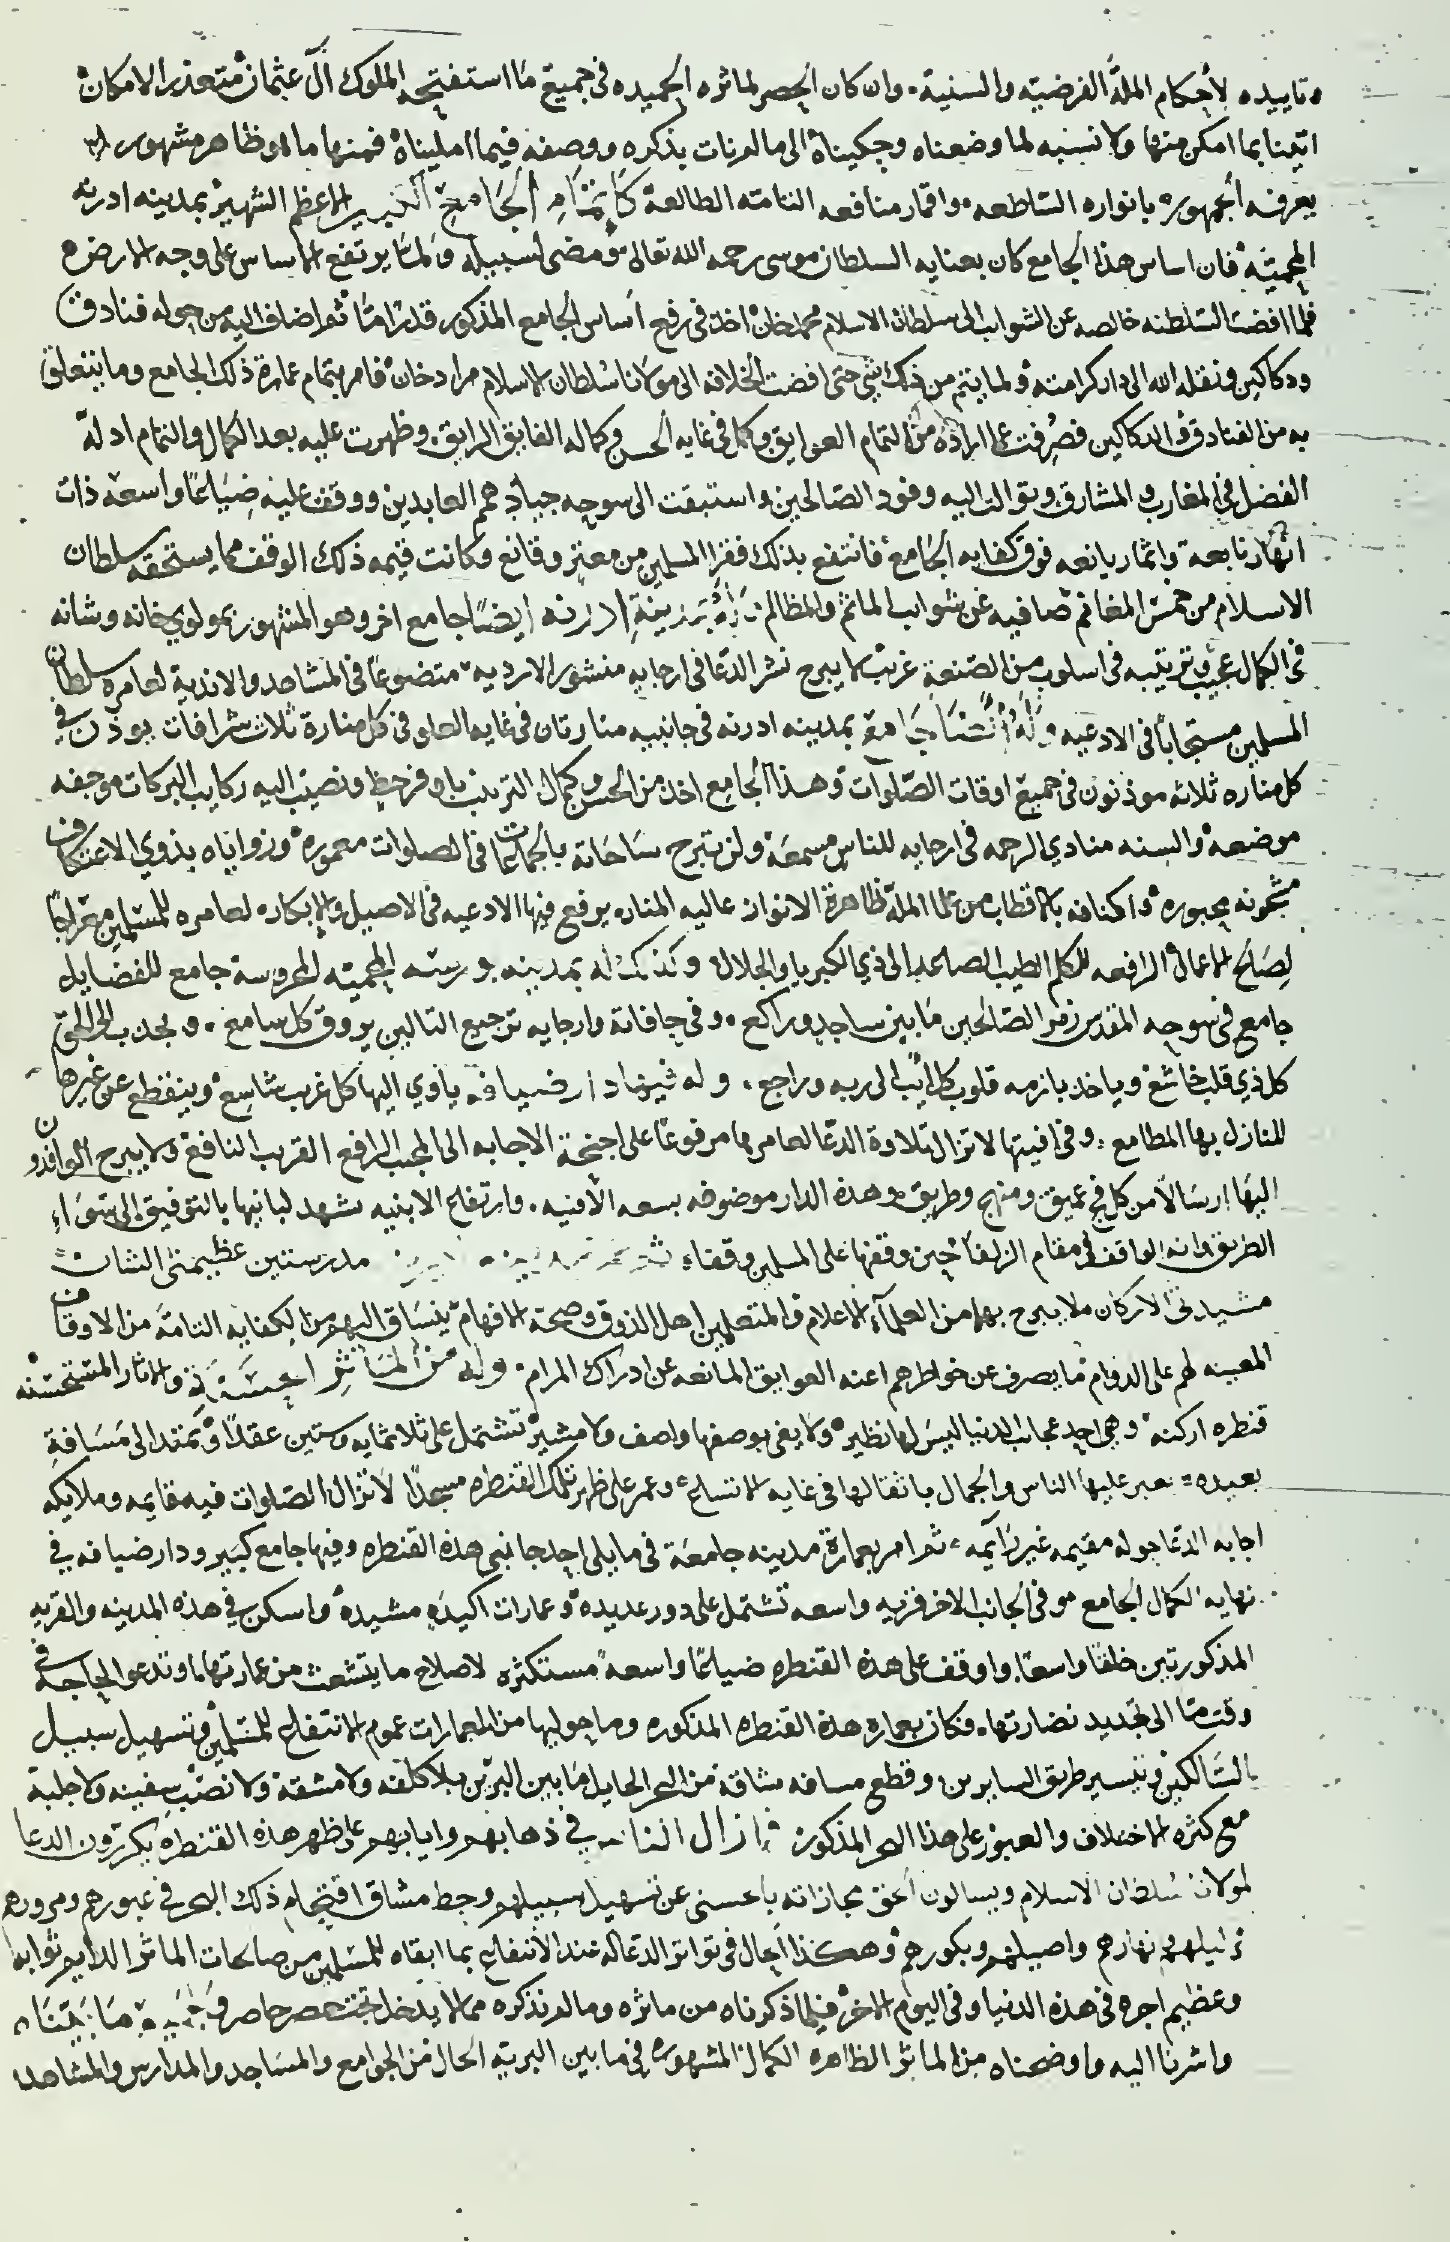 وتاييده لأحكام الملة الفرضية والسنية وان كان الحصر لماثره الحميده فى جميع ما استفتحه الملوك ال عثمان متعذر الامكان
اتينا بما امكن منها ولا نسبه لما وضعناه وحكيناه الى ما لم نات بذكره ووصفه فيما امليناه فمنها ما هو ظاهر مشهور
يعرفه الجمهور بانواره الساطعه واقمار منافعه التامه الطالعة كاتمام الجامع الكبير الاعظم الشهير بمدينه ادرنه
المحمية فان اساس هذا الجامع كان بعنايه السلطان موسى رحمه الله تعالى ومضى لسبيله ولما يرتفع الاساس على وجه الارض
فلما افضت السلطنه خالصه عن الشوايب الى سلطان الاسلام محمد خان اخذ فى رفع أساس الجامع المذكور قدرا ما ثم اضاف اليه من حوله فنادق
ودكاكين ونقله الله الى دار كرامته ولما يتم من ذلك شي حتى افضت الخلافه الى مولانا سلطان الاسلام مراد خان فامر بتمام عمارة ذلك الجامع وما يتعلق
به من الفنادق والدكاكين فصرفت عما اراده من التمام العوايق وكمل فى غايه الحسن وكماله الفايق الرايق وظهرت عليه بعد الكمال والتمام ادلة
الفضل فى المغارب والمشارق وتوالت اليه وفود الصالحين واستبقت الى سوحه جياد همم العابدين ووقف عليه ضياعا واسعة ذات
انهار نابعة واثمار يانعه فوق كفايه الجامع فانتفع بذلك فقرا المسلمين من معتر وقانع وكانت قيمه ذلك الوقف مما يستحقه سلطان
الاسلام من خمس المغانم صافيه عن شوايب الماثم والمظالم وله بمدينة ادرنه ايضا جامع اخر وهو المشهور بمولوي خانه وشانه
فى الكمال عجيب وترتيبه فى اسلوب من الصنعة غريب لا يبرح نشر الدعا فى ارجايه منشور الارديه متضوعا فى المشاهد والاندية لعامره سلطان
المسلمين مستجابا فى الادعيه وله ايضا جامع بمدينه ادرنه فى جانبيه منارتان فى غايه العلو فى كل مناره ثلاث شرافات يوذن في
كل مناره ثلاثه موذنون فى جميع اوقات الصلوات وهذا الجامع اخذ من الحسن وكمال الترتيب باوفر حظ ونصيب اليه ركايب البركات موجفه
موضعه والسنه منادي الرحمه فى ارجايه للناس مسمعة ولن تبرح ساحاته بالجماعات فى الصلوات معموره وزواياه بذوي الاعتكاف
مشحونه محبوره واكنافه بالاقطاب من علما الملة ظاهرة الانوار عاليه المنار يرفع فيها الادعيه فى الاصيل والابكار لعامره للمسلمين معراجا
لصالح الاعمال الرافعه للكلم الطيب الصاعد الى ذي الكبريا والجلال وكذلك له بمدينه بورسه المحميه المحروسة جامع للفضايل
جامع فى سوحه المقدس زمر الصالحين ما بين ساجد وراكع وفى حافاته وارجايه ترجيع التالين يروق كل سامع ويجذب الى الحق
كل ذي قلب خاشع وياخذ بازمه قلوب كل ايب الى ربه وراجع وله فيها دار ضيافه ياوي اليها كل غريب شاسع وينقطع عن غيرها
للنازل بها المطامع وفى افنيتها لا تزال تلاوة الدعا لعامرها مرفوعا على اجنحة الاجابه الى المجيب الرافع القريب النافع ولا يبرح الوافدون
اليها ارسالا من كل فج عميق ومنهج وطريق وهذه الدار موضوفه بسعه الأفنيه وارتفاع الابنيه تشهد لبانيها بالتوفيق الى سواء
الطريق وانه الواقف فى مقام الزلفا حين وقفها على المسلمين وقفاء مدرستين عظيمتى الشان
مشيدتى الاركان ملا يبرح بهما من العلمآء الاعلام والمتعلمين اهل الذوق وصحة الافهام ينساق اليهم من الكفايه التامة من الاوقاف
المعينه لهم على الدوام ما يصرف عن خواطرهم اعنه العوايق المانعه عن ادراك المرام وله من الماثر الحسنة والاثار المستحسنه
قنطره اركنه وهى احد عجائب الدنيا ليس لها نظير ولا يفى بوصفها واصف ولا مشير تشتمل على ثلاثمايه وستين عقدا وتمتد الى مسافة
بعيده يعبر عليها الناس والجمال باثقالها فى غايه الاتساع وعمر على ظهر تلك القنطره مسجدا لا تزال الصلوات فيه قايمه وملايكه
اجابه الدعا حوله مقيمه غير رايمه ثم امر بعمارة مدينه جامعة فى ما يلى احد جانبى هذه القنطره وفيها جامع كبير ودار ضيافه في
نهايه الكمال الجامع وفى الجانب الاخر قريه واسعه تشتمل على دور عديده وعمارات اكيده مشيده واسكن في هذه المدينه والقريه
المذكورتين خلقا واسعا واوقف على هذه القنطره ضياعا واسعة مستكثره لاصلاح ما يتشعث من عمارتها وتدعو الحاجة فى
وقت ما الى تجديد نضارتها فكان بعماره هذه القنطره المذكوره وما حوليها من العمارات عموم الانتفاع للمسلمين وتسهيل سبيل
السالكين وتيسير طريق السايرين وقطع مسافه شاقة من البحر الحايل ما بين البرين بلا كلفه ولا مشقة ولا نصب سفينه ولا جلبة
مع كثره الاختلاف والعبور على هذا البحر المذكور فما زال الناس في ذهابهم وايابهم على ظهر هذه القنطره يكررون الدعا
لمولانا سلطان الاسلام ويسالون الحق مجازاته بالحسنى عن تسهيل سبيلهم وحط مشاق اقتحام ذلك البحر فى عبورهم ومرورهم
فى ليلهم ونهارهم واصيلهم وبكورهم وهكذا الحال فى تواتر الدعا له عند الأنتفاع بما ابقاه للمسلمين من صالحات الماثر الدايم ثوابه
وعظيم اجره فى هذه الدنيا وفى اليوم الاخر فيما ذكرناه من ماثره وما لم نذكره مما لا يدخل تحت حصر حاصر
واشرنا اليه واوضحناه من الماثر الظاهره الكمال المشهوره فى ما بين البريه الحال من الجوامع والمساجد والمدارس والمشاهد